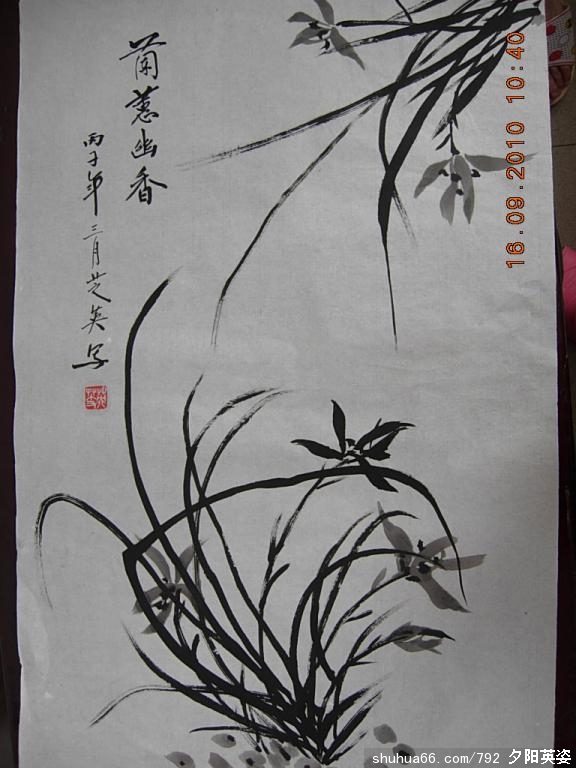 蘭蕙幽香
丙子年三月芝英写
16.09.2010 10:40
shuhua66.com/792 夕阳英姿